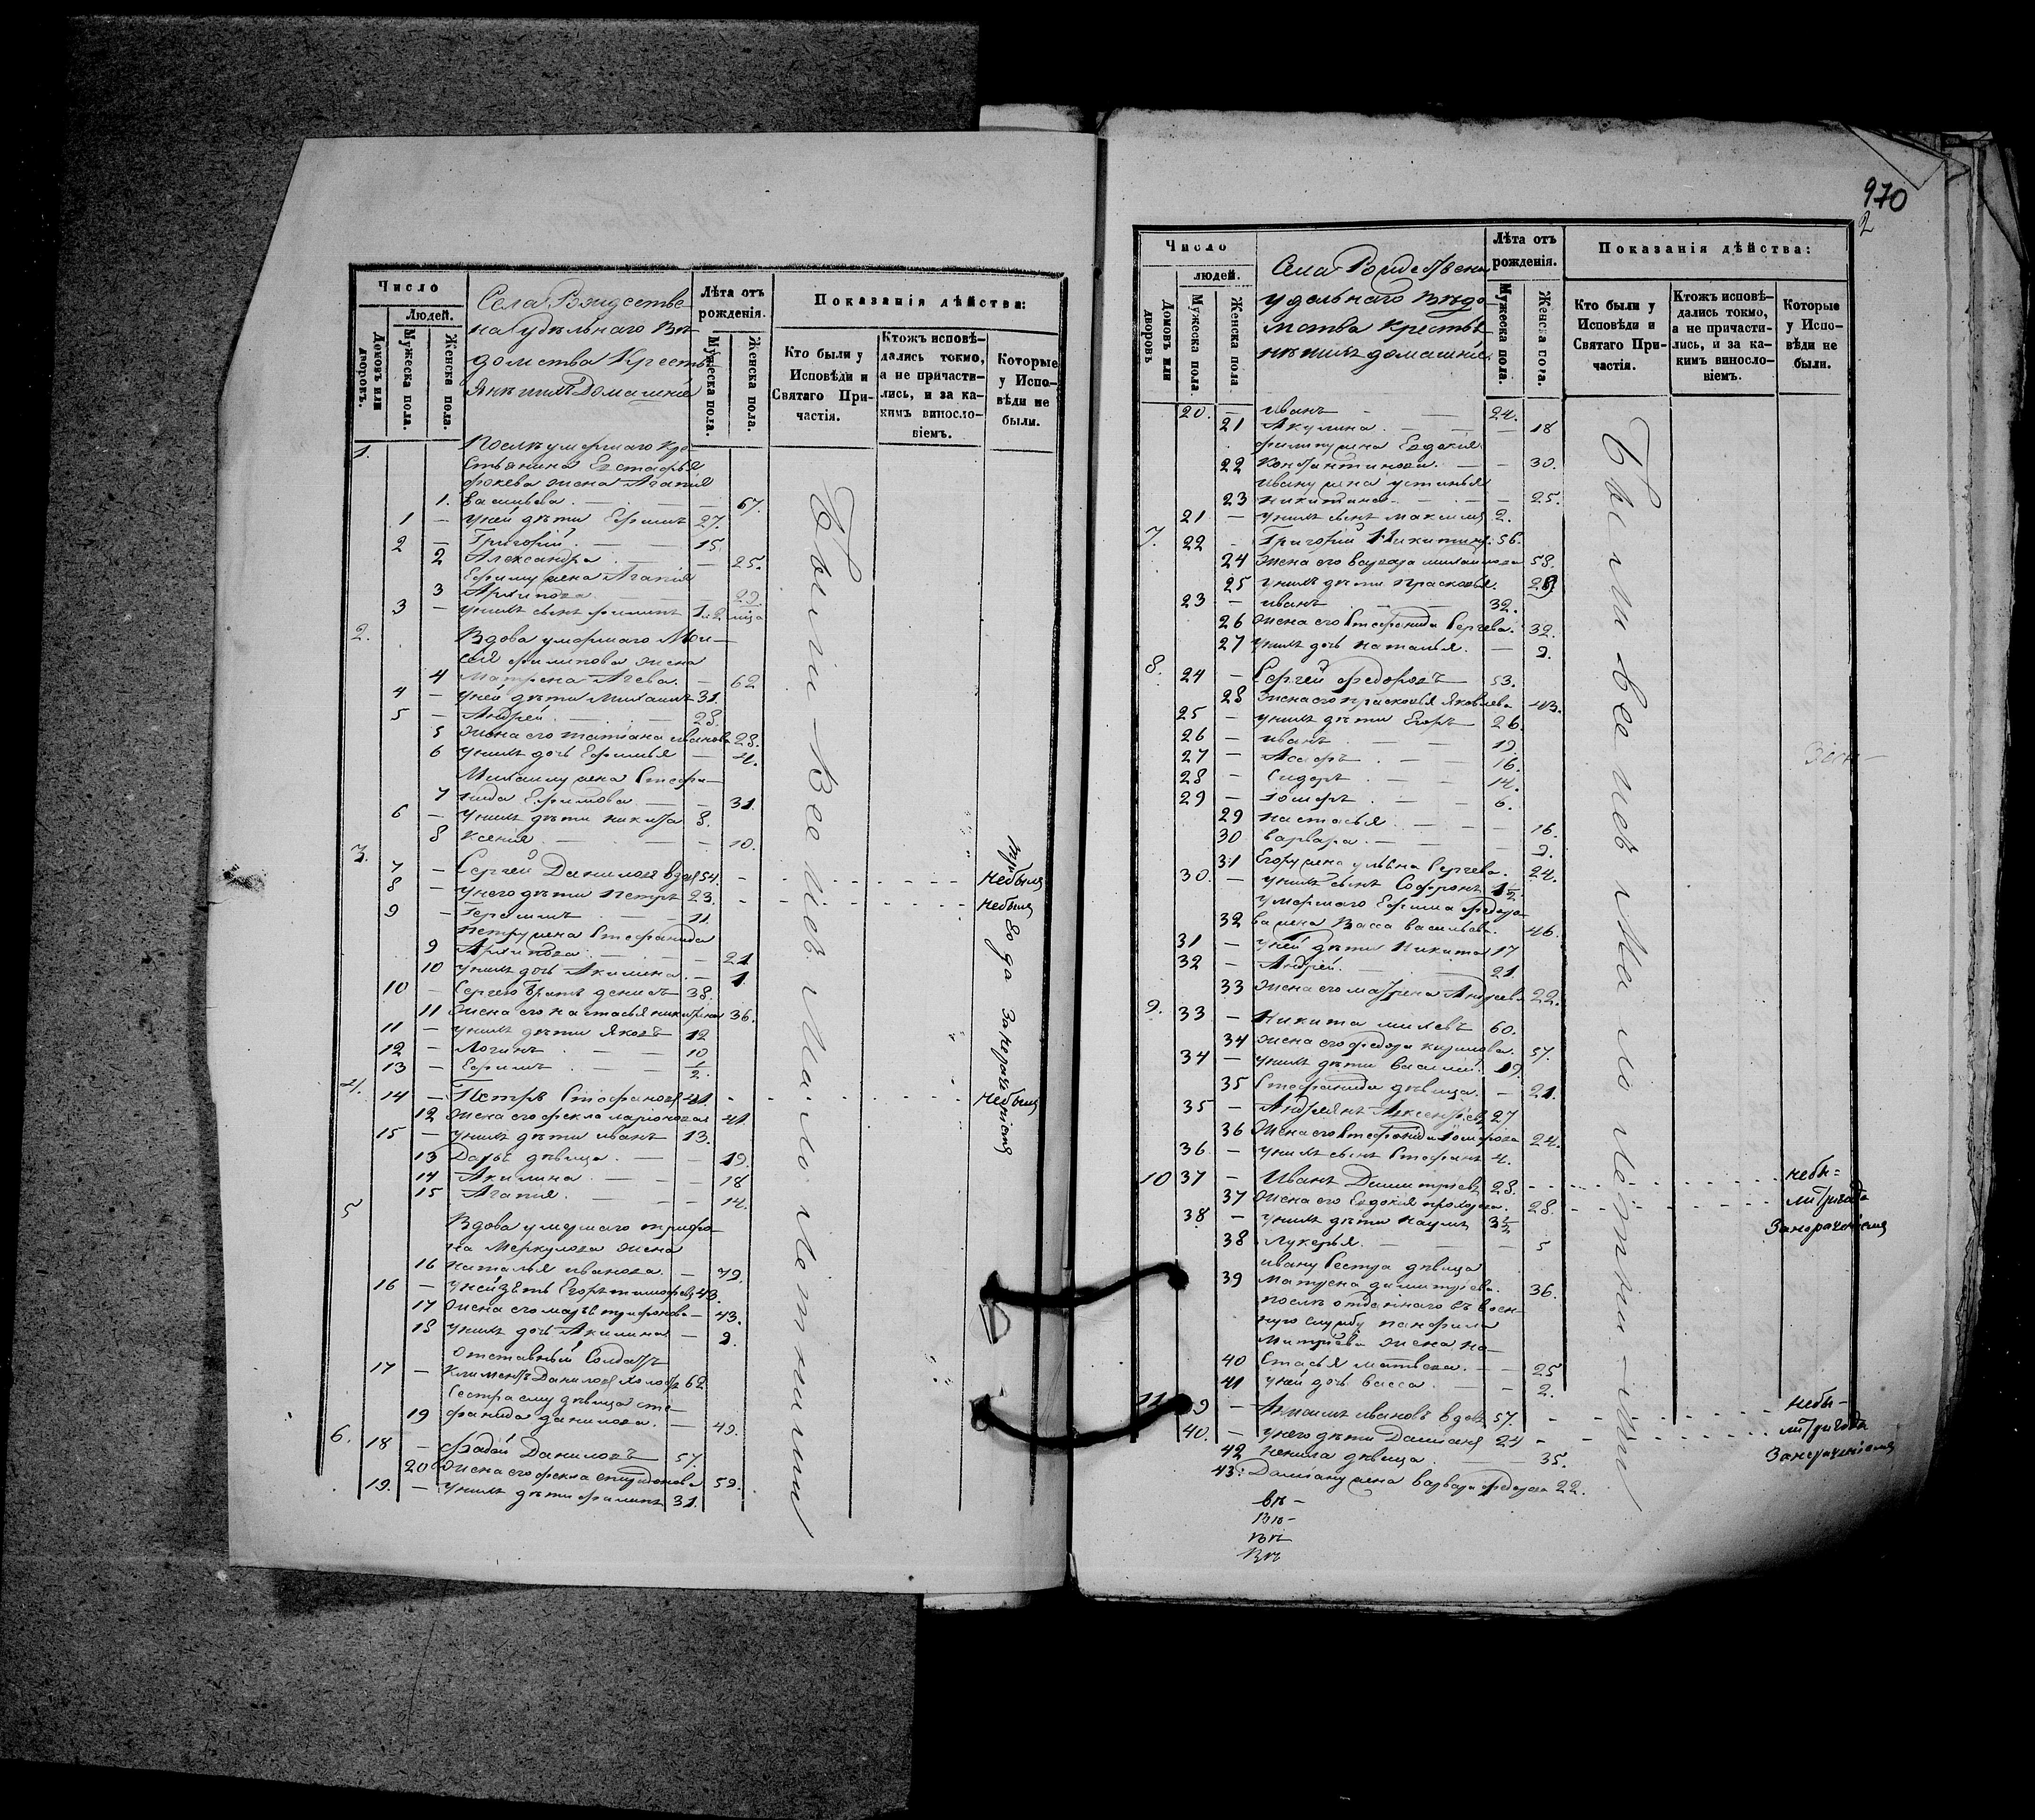 Число
Людей.
Домовъ или дворовъ.
Мужеска пола.
Женска пола.
Села Рождестве
на Удѣльнаго Вѣ
домства Кресть
янѣ ихъ Домашнiе
Лѣта отъ рожденiя.
Мужеска пола.
Женска пола.
Показанiя дѣйства:
Кто были у Исповѣди и Святаго Причастiя.
Ктожъ исповѣдались токмо, а не причастились, и за какимъ винословiемъ.
Которые у Исповѣди не были.
1. Послѣ умершаго Кре
стьянина Евстафья
жена Агапiя
1. Васильева. — — 67.
1 — У ней дѣти Ефимъ 27.
2 — Григорiй — 15.
2 Александра — — 25.
Ефиму жена Агапiя
3 Архипова — 29
3 — У нихъ сынъ Филипъ
2. Вдова умершаго Мои—
сея Филипова жена
4 Матрена — 62
4 — У ней дѣти Михаилъ 31.
5 — Андрей — 28.
5 Жена его Татiана Иванова 28.
6 У нихъ дочь Ефимья — 4.
Михаилу жена Стефа—
7 нида Ефимова — — 31.
6 — У нихъ дѣти Никита 8.
8 Ксенiя — — 10.
3. 7 — Сергей Даниловъ вдов 54. небылъ
8 — У него дѣти Петръ 23. небылъ
9 — Герасимъ — 11
Петру жена Стефанида
9 Архипова — — 21
10 У нихъ дочь Акилина — 1.
10 — Сергею братъ Денисъ 38.
11 Жена его Настасья Никитина 36.
11 — У нихъ дѣти Яковъ 12
12 — Логинъ — 10
13 — Ефимъ — 1/2.
4. 14 — Петръ Стефановъ 41 небылъ
12 Жена его Фекла Ларiонова 41
15 — У нихъ дѣти Иванъ 13.
13 Дарья дѣвица. — — 19.
14 Акилина — — 18
15 Агапiя. — — 14.
5 Вдова умершаго Трифо
на Меркулова жена
16 Наталья Иванова — 79.
16 — У ней зять Егоръ Тимофеевъ 43.
17 Жена его Марья Трифонова — 43.
18 У нихъ дочь Акилина — 9.
Отставный Солдатъ
17 — Климентъ Даниловъ 62
Сестра ему дѣвица Сте—
19 фанида Данилова. — 49.
6. 18 — Фадей Даниловъ 57.
20 Жена его Фекла Спиридонова 59.
19. — У нихъ дѣти Филипъ 31.
Были — Все песѣ Мало летныи
970
2
Число
людей.
Домовъ или дворовъ
Мужеска пола
Женска пола
Села Рождествена
удельнаго Вѣдо
мства Крестья
нѣ ихъ домашнiе
Лѣта отъ рожденiя.
Мужеска пола.
Женска пола.
Показанiя дѣйства:
Кто были у Исповѣди и Святаго Причастiя.
Ктожъ исповѣдались токмо, а не причастились, и за какимъ винословiемъ.
Которые у Исповѣди не были.
20. — Иванъ — 24.
21 Акулина. — — 18
Филипу жена Евдокiя
22 Константинова. — — 30.
Ивану жена Устинья
23 Никитина — — 25.
21 — У нихъ сынъ Максимъ 2.
7. 22 — Григорiй Никитинъ. 56.
24 Жена его Варвара Михаилова 58.
25 У нихъ дѣти Прасковья.
23 — Иванъ — 32.
26 Жена его Стефанида Сергѣева. 32.
27 У нихъ дочь Наталья. — 9.
8. 24 — Сергей Федоровъ 53.
28 Жена его Прасковья Яковлева 43.
25 — У нихъ дѣти Егоръ 26
26 — Иванъ — 19
27 — — 16.
28 — Сидоръ — 14.
29 — — 6.
29 Настасья — — 16.
30 Варвара. — — 9.
31 Егору жена Ульяна Сергѣева. 24.
30. — У нихъ сынъ Софронъ 1 1/2
Умершаго Ефима Федоро
32 ва жена Васса Васильева. 46.
31 — У ней дѣти Никита 17
32 — Андрей. — 21.
33 Жена его Матрена Андреева 22.
9. 33 — Никита 60.
34 Жена его Федора Кирилова. 57.
34 — У нихъ дѣти Василiй. 19.
35 Стефанида дѣвица. — 21.
35 — Андреянъ Аксентьевъ 27
36 Жена его Стефанида 24.
36 — У нихъ сынъ Стефанъ 4.
10 37 — Иванъ Димитрiевъ 28. небы=
37 Жена его Евдокiя 28. ли три года
38 — У нихъ дѣти Наумъ 3 1/2
38 Лукерья — — 5
Ивану Сестра дѣвица
39 Матрена Димитрiева. 36.
После отданнаго въ воен
ную службу Панфила
Митрiева жена На
40 стасья Матвеева. — 25
41 У ней дочь Васса — 2.
11 39 — Иванов вдовъ 57. небы—
40. — У него дѣти Дамiанъ 24 ли три года
42 Ненила дѣвица — 35.
43: Дамiану жена Варвара Федорова 22.
Вѣ—
Вѣ—
Вѣ
Вѣ
Были Все песѣ Мало летныи —